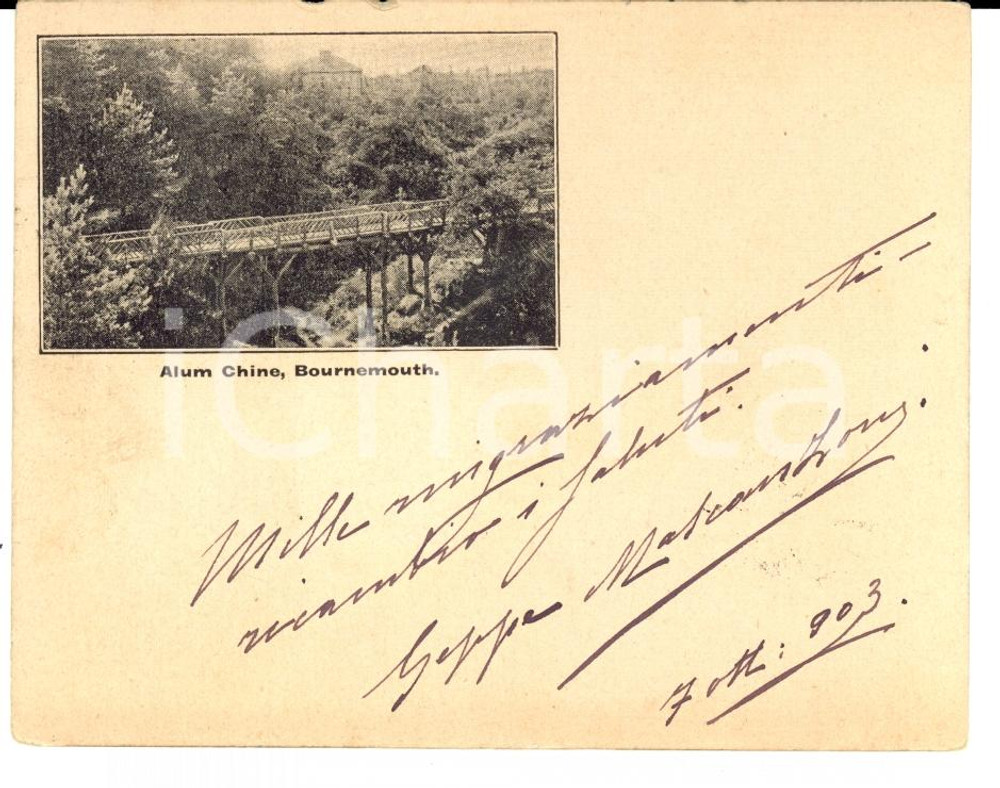 Alum Chine, Bournemouth.
Mille ringraziamenti -
ricambio i saluti.
Geppe
7 ott: 903.
iCharta